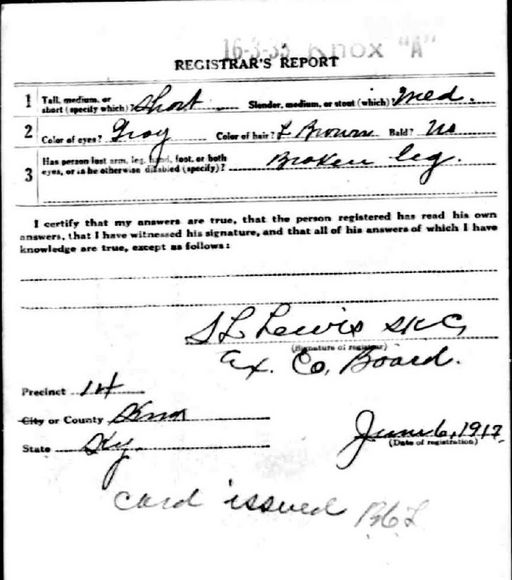 16-3-33 Knox "A"
REGISTRAR'S REPORT
1 Tall, medium, or short (specify which)? Short Slender, medium, or stout (which)? Med.
2 Color of eyes? Gray Color of hair? L Brown Bald? No
3 Has person lost arm, leg, hand, foot, or both eyes, or is he otherwise disabled (specify)? Broken leg.
I certify that my answers are true, that the person registered has read his own
answers, that I have witnessed his signature, and that all of his answers of which I have
knowledge are true, except as follows:
S L Lewis
(Signature of registrar)
Ex. Co. Board.
Precinct 14
City or County Knox
State Ky.
June 6, 1917
(Date of registration)
card issued